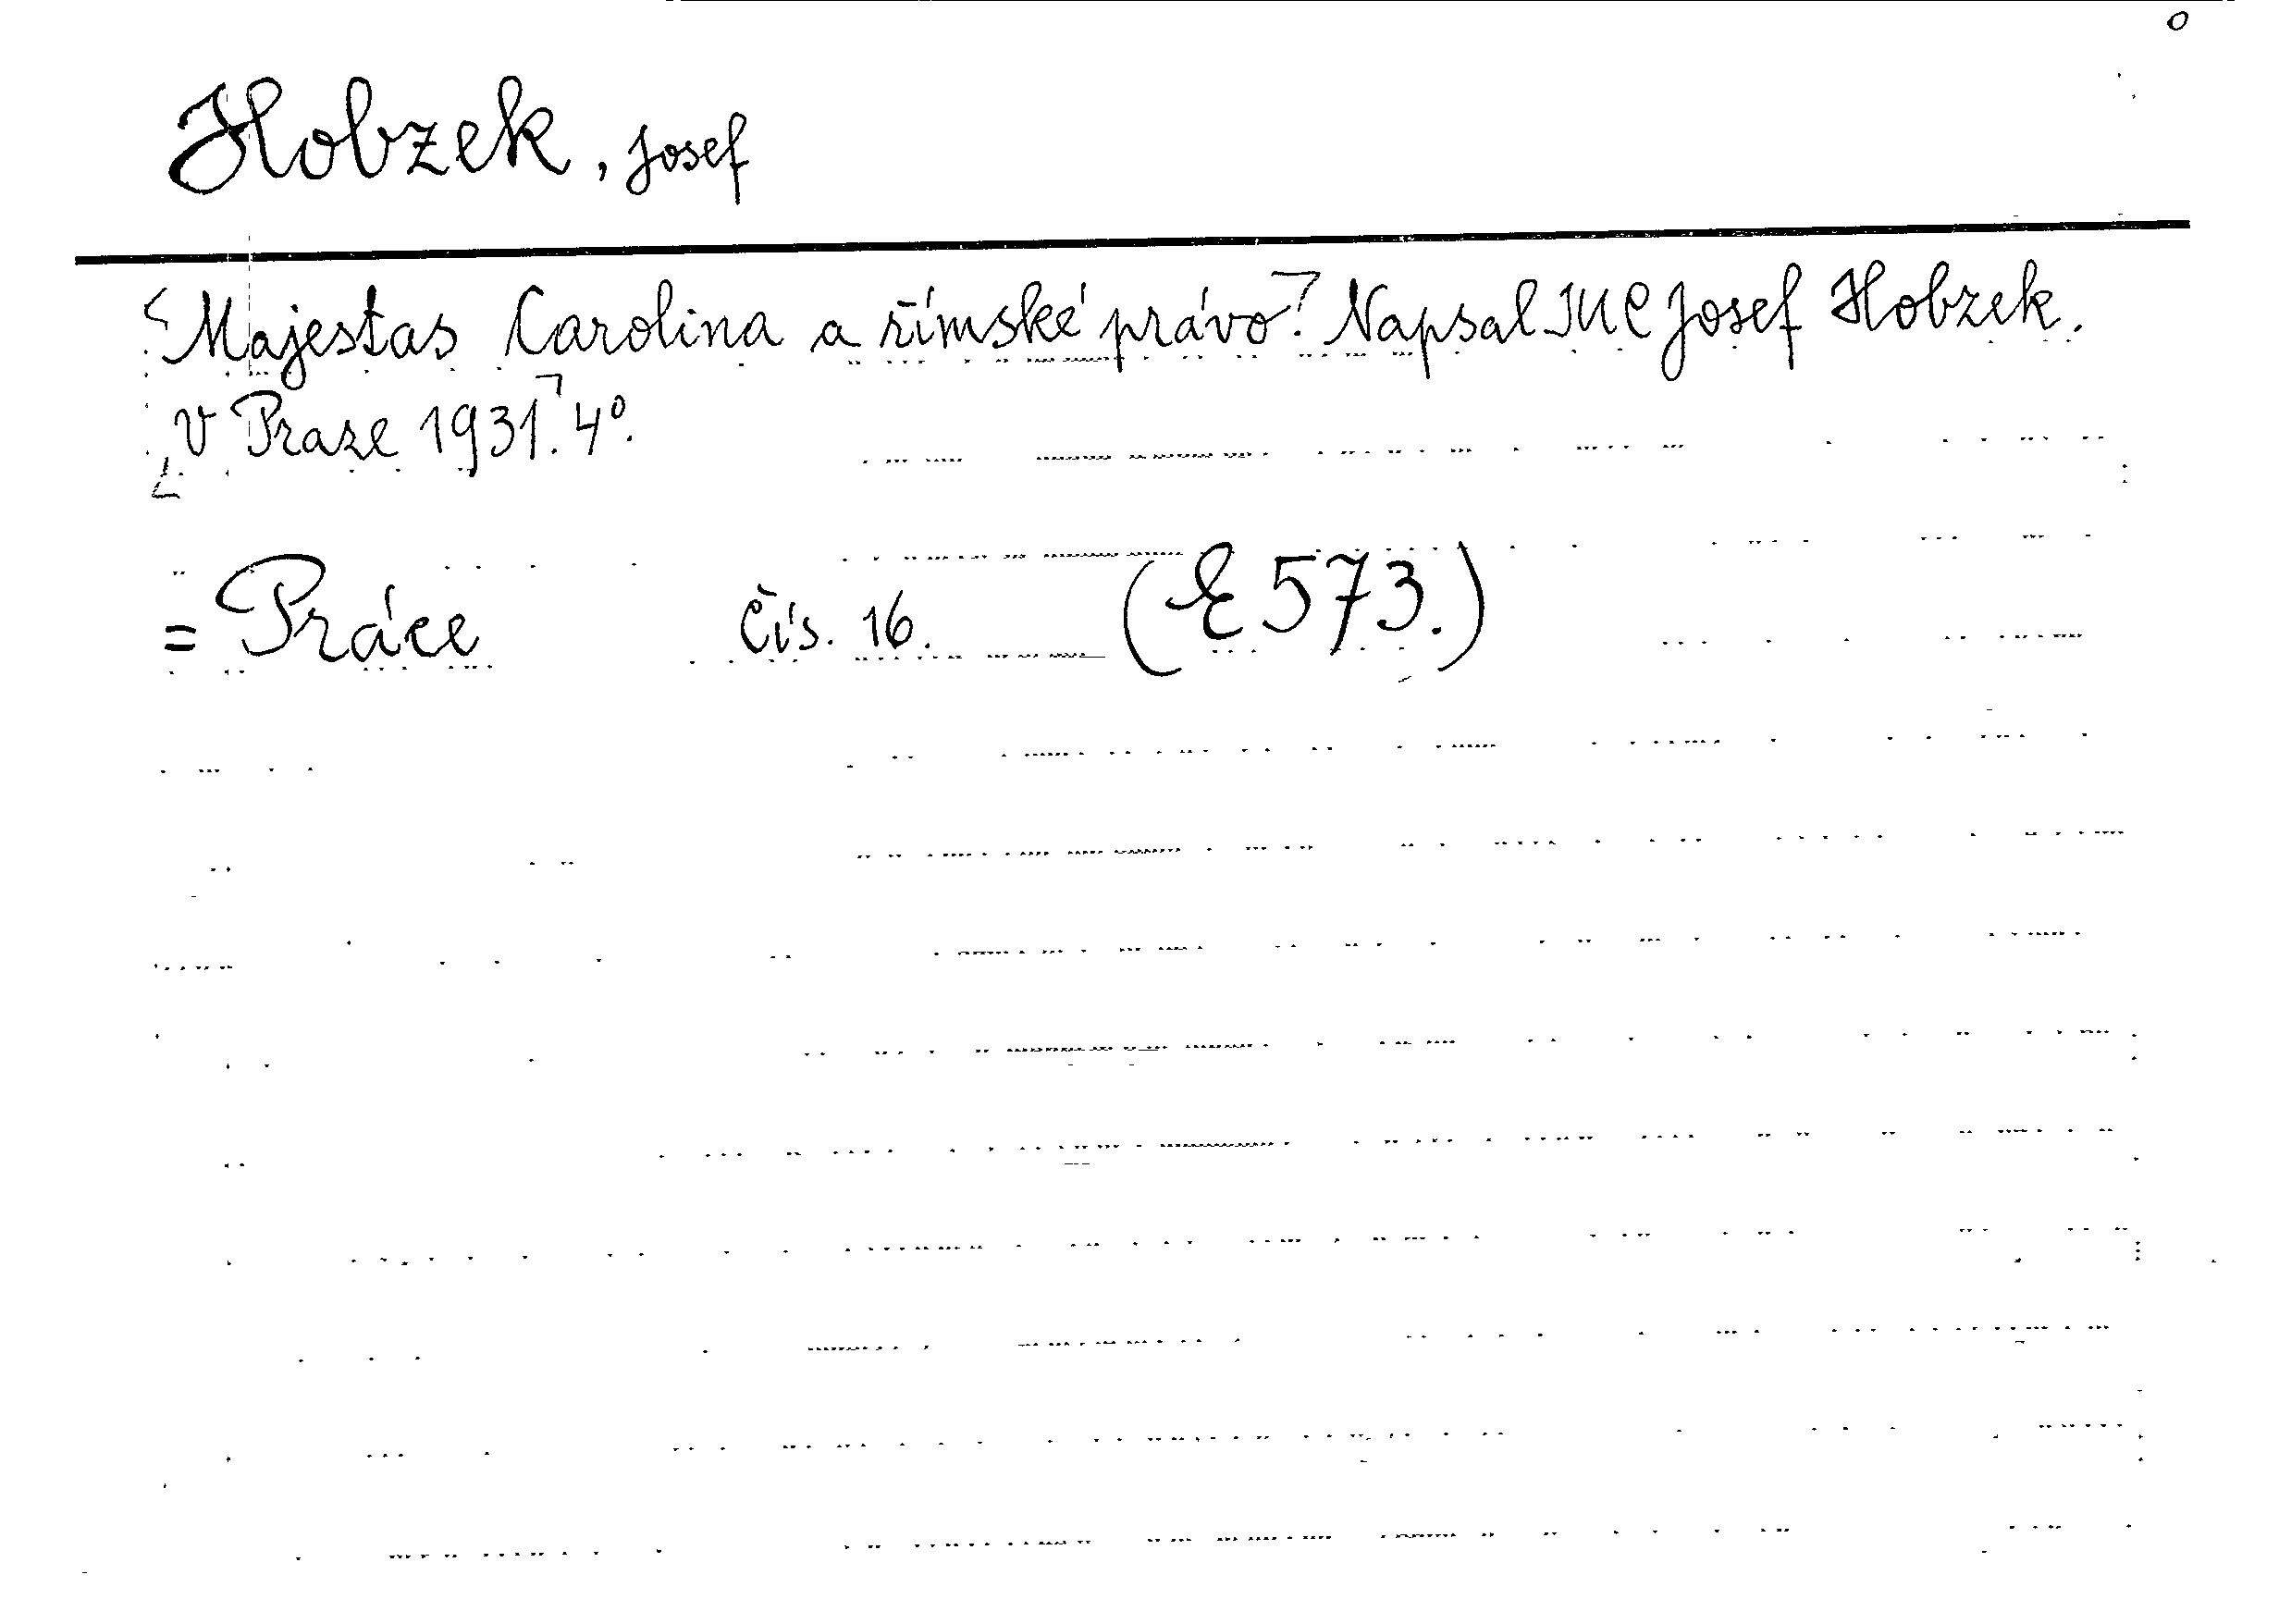 o
Hobzek, Josef
Majestas Carolina a římské právo. Napsal JUC Josef Hobzek.
V Praze 1931. 4º.
= Práce čís. 16. (E 573.)